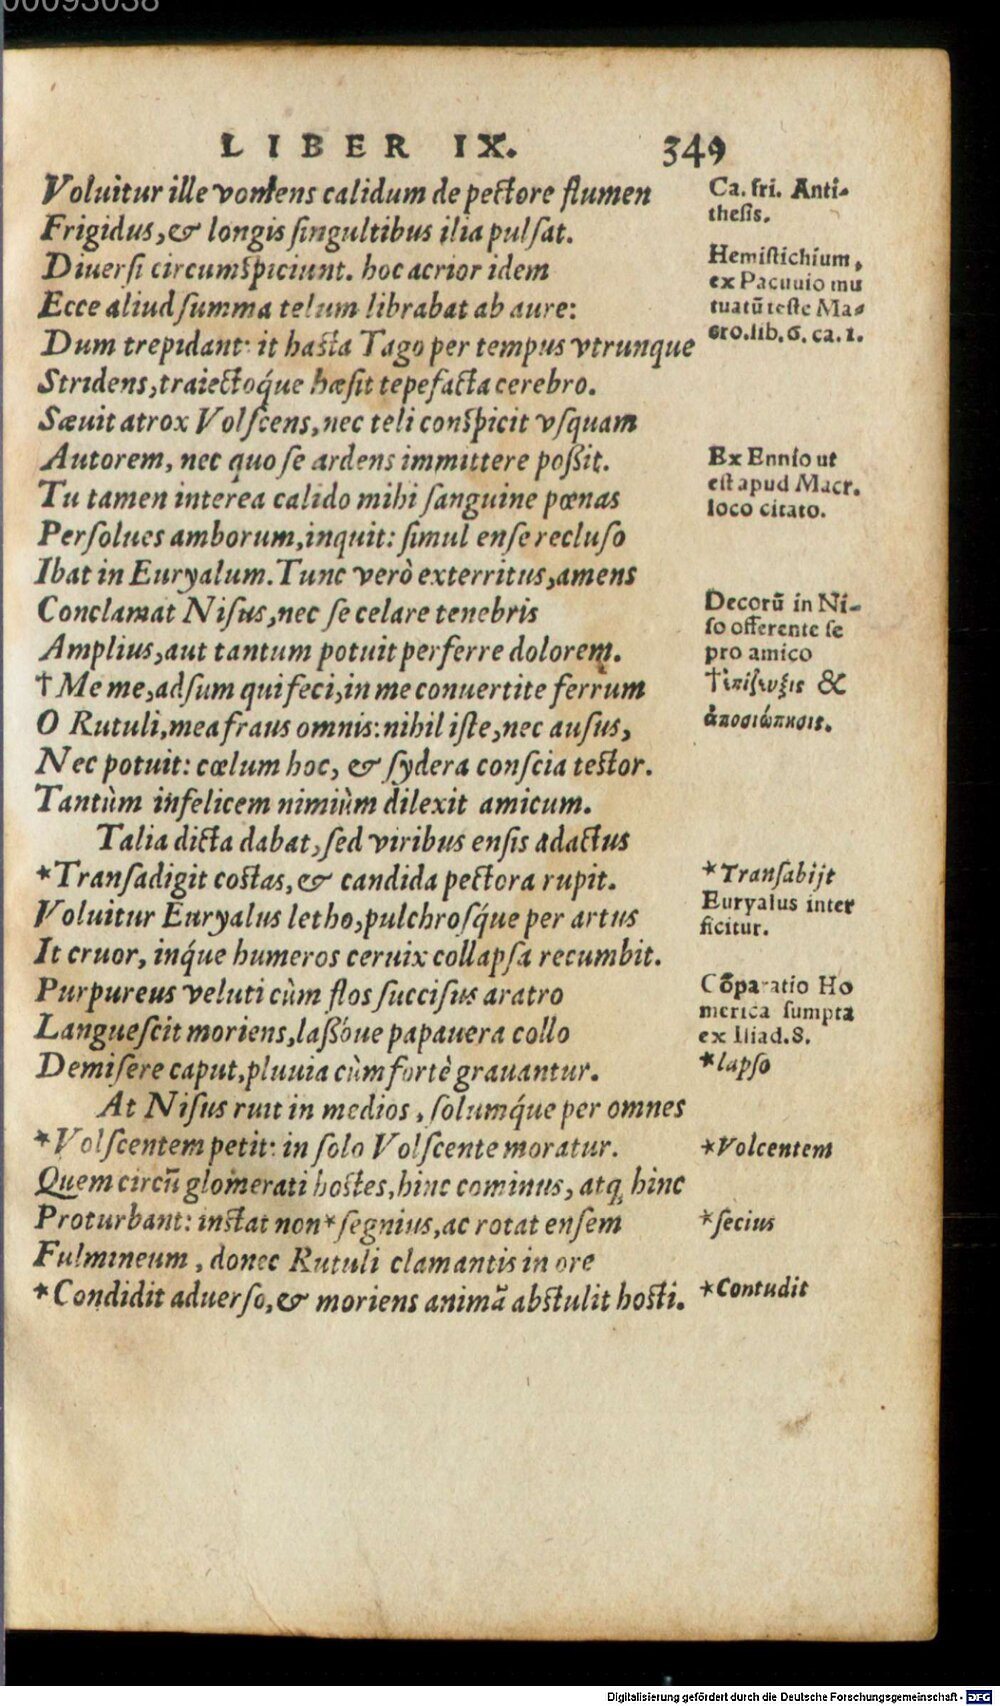 00093038
LIBER IX. 349
Voluitur ille vomens calidum de pectore flumen
Frigidus, & longis singultibus ilia pulsat.
Diuersi circumspiciunt. hoc acrior idem
Ecce aliud summa telum librabat ab aure:
Dum trepidant: it hasta Tago per tempus vtrunque
Stridens, traiectoq́ue hæsit tepefacta cerebro.
Sæuit atrox Volscens, nec teli conspicit vsquam
Autorem, nec quo se ardens immittere poßit.
Tu tamen interea calido mihi sanguine pœnas
Persolues amborum, inquit: simul ense recluso
Ibat in Euryalum. Tunc verò exterritus, amens
Conclamat Nisus, nec se celare tenebris
Amplius, aut tantum potuit perferre dolorem.
† Me me, adsum qui feci, in me conuertite ferrum
O Rutuli, mea fraus omnis: nihil iste, nec ausus,
Nec potuit: cœlum hoc, & sydera conscia testor.
Tantùm infelicem nimiùm dilexit amicum.
Talia dicta dabat, sed viribus ensis adactus
*Transadigit costas, & candida pectora rupit.
Voluitur Euryalus letho, pulchrosq́ue per artus
It cruor, inq́ue humeros ceruix collapsa recumbit.
Purpureus veluti cùm flos succisus aratro
Languescit moriens, laßóue papauera collo
Demisere caput, pluuia cùm fortè grauantur.
At Nisus ruit in medios, solumq́ue per omnes
*Volscentem petit: in solo Volscente moratur.
Quem circũ glomerati hostes, hinc cominus, atq; hinc
Proturbant: instat non *segnius, ac rotat ensem
Fulmineum, donec Rutuli clamantis in ore
*Condidit aduerso, & moriens animã abstulit hosti.
Ca. fri. Anti-
thesis.
Hemistichium,
ex Pacuuio mu
tuatũ teste Ma-
cro. lib. 6. ca. 1.
Ex Ennio ut
est apud Macr.
loco citato.
Decorũ in Ni-
so offerente se
pro amico
† ἐπίζευξις &
ἀποσιώπησις.
*Transabijt
Euryalus inter
ficitur.
Cõparatio Ho
merica sumpta
ex Iliad. 8.
*lapso
*Volcentem
*secius
*Contudit
Digitalisierung gefördert durch die Deutsche Forschungsgemeinschaft - DFG